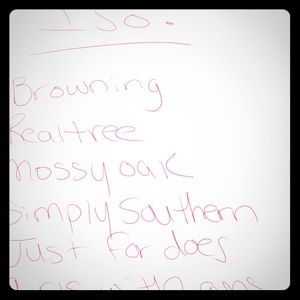 ISO.
Browning
Realtree
Mossy oak
Simply Southern
Just for does
with